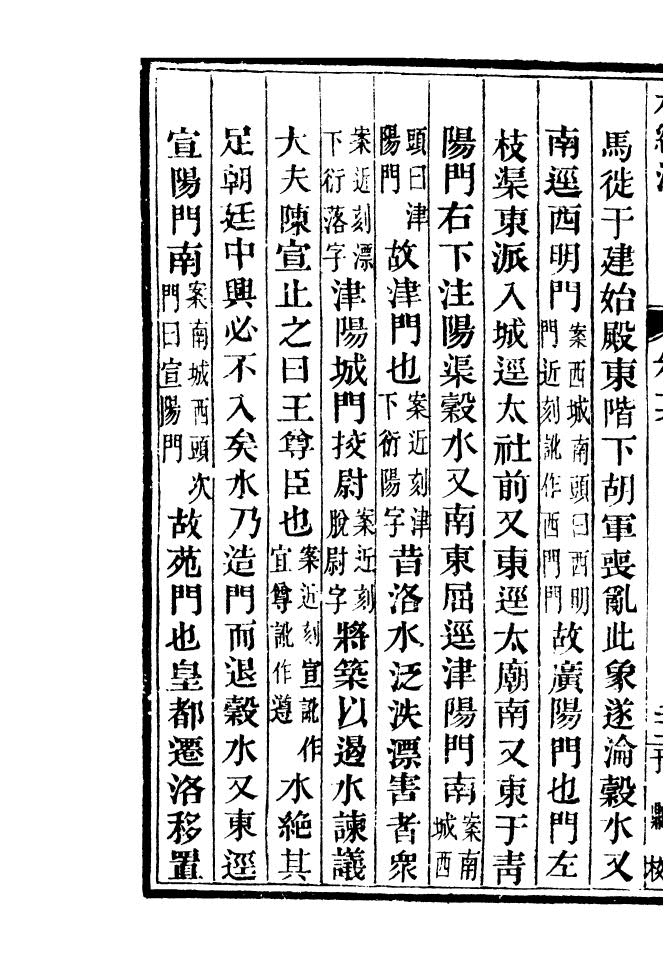 水經注
馬徙于建始殿東階下胡軍喪亂此象遂淪穀水又
南逕西明門案西城南頭曰西明門近刻訛作西門門故廣陽門也門左
枝渠東派入城逕太社前又東逕太廟南又東于青
陽門右下注陽渠穀水又南東屈逕津陽門南案南城西
頭曰津陽門故津門也案近刻津下衍陽字昔洛水泛泆漂害者衆
案近刻漂下衍落字津陽城門挍尉案近刻脫尉字將築以遏水諫議
大夫陳宣止之曰王尊臣也案近刻宣訛作宜尊訛作遵水絶其
足朝廷中興必不入矣水乃造門而退穀水又東逕
宣陽門南案南城西頭次門曰宣陽門故苑門也皇都遷洛移置